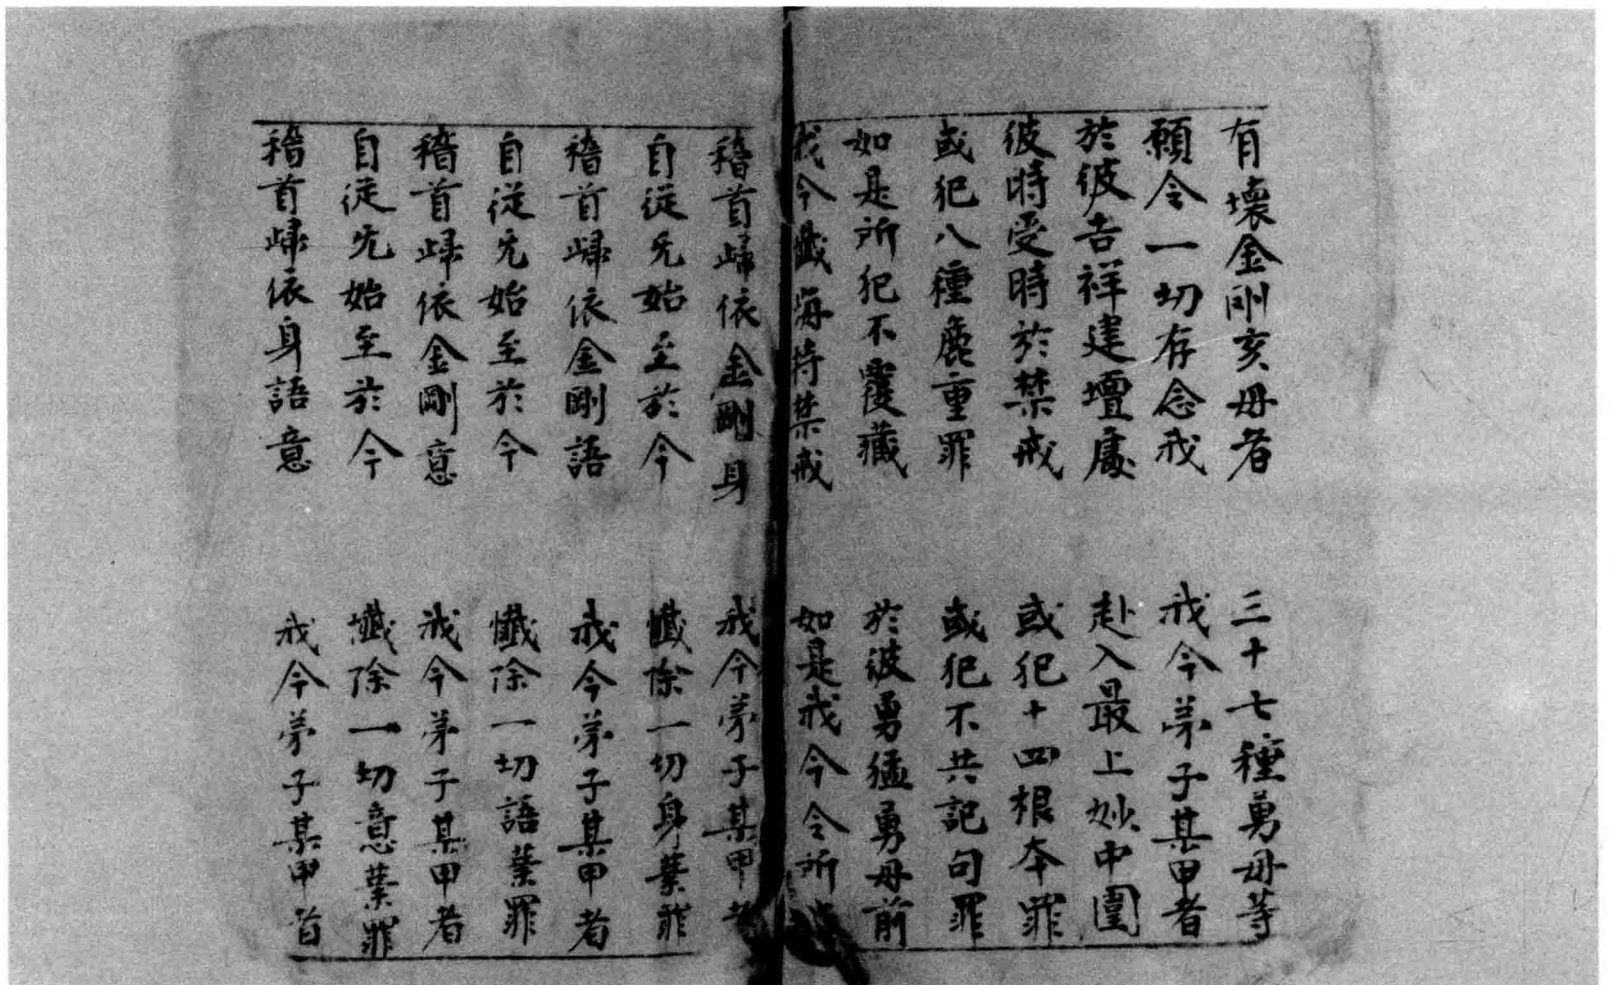 有壞金剛亥母者 三十七種勇母等
願令一切存念我 我今弟子某甲者
於彼吉祥建壇處 赴入最上妙中圍
彼時受時於禁戒 或犯十四根本罪
或犯八種麁重罪 或犯不共記句罪
如是所犯不覆藏 於彼勇猛勇母前
我今懺悔持禁戒 如是我今令所
稽首歸依金剛身 我今弟子某甲者
自從无始至於今 懺除一切身業罪
稽首歸依金剛語 我今弟子某甲者
自從无始至於今 懺除一切語業罪
稽首歸依金剛意 我今弟子某甲者
自從无始至於今 懺除一切意業罪
稽首歸依身語意 我今弟子某甲首